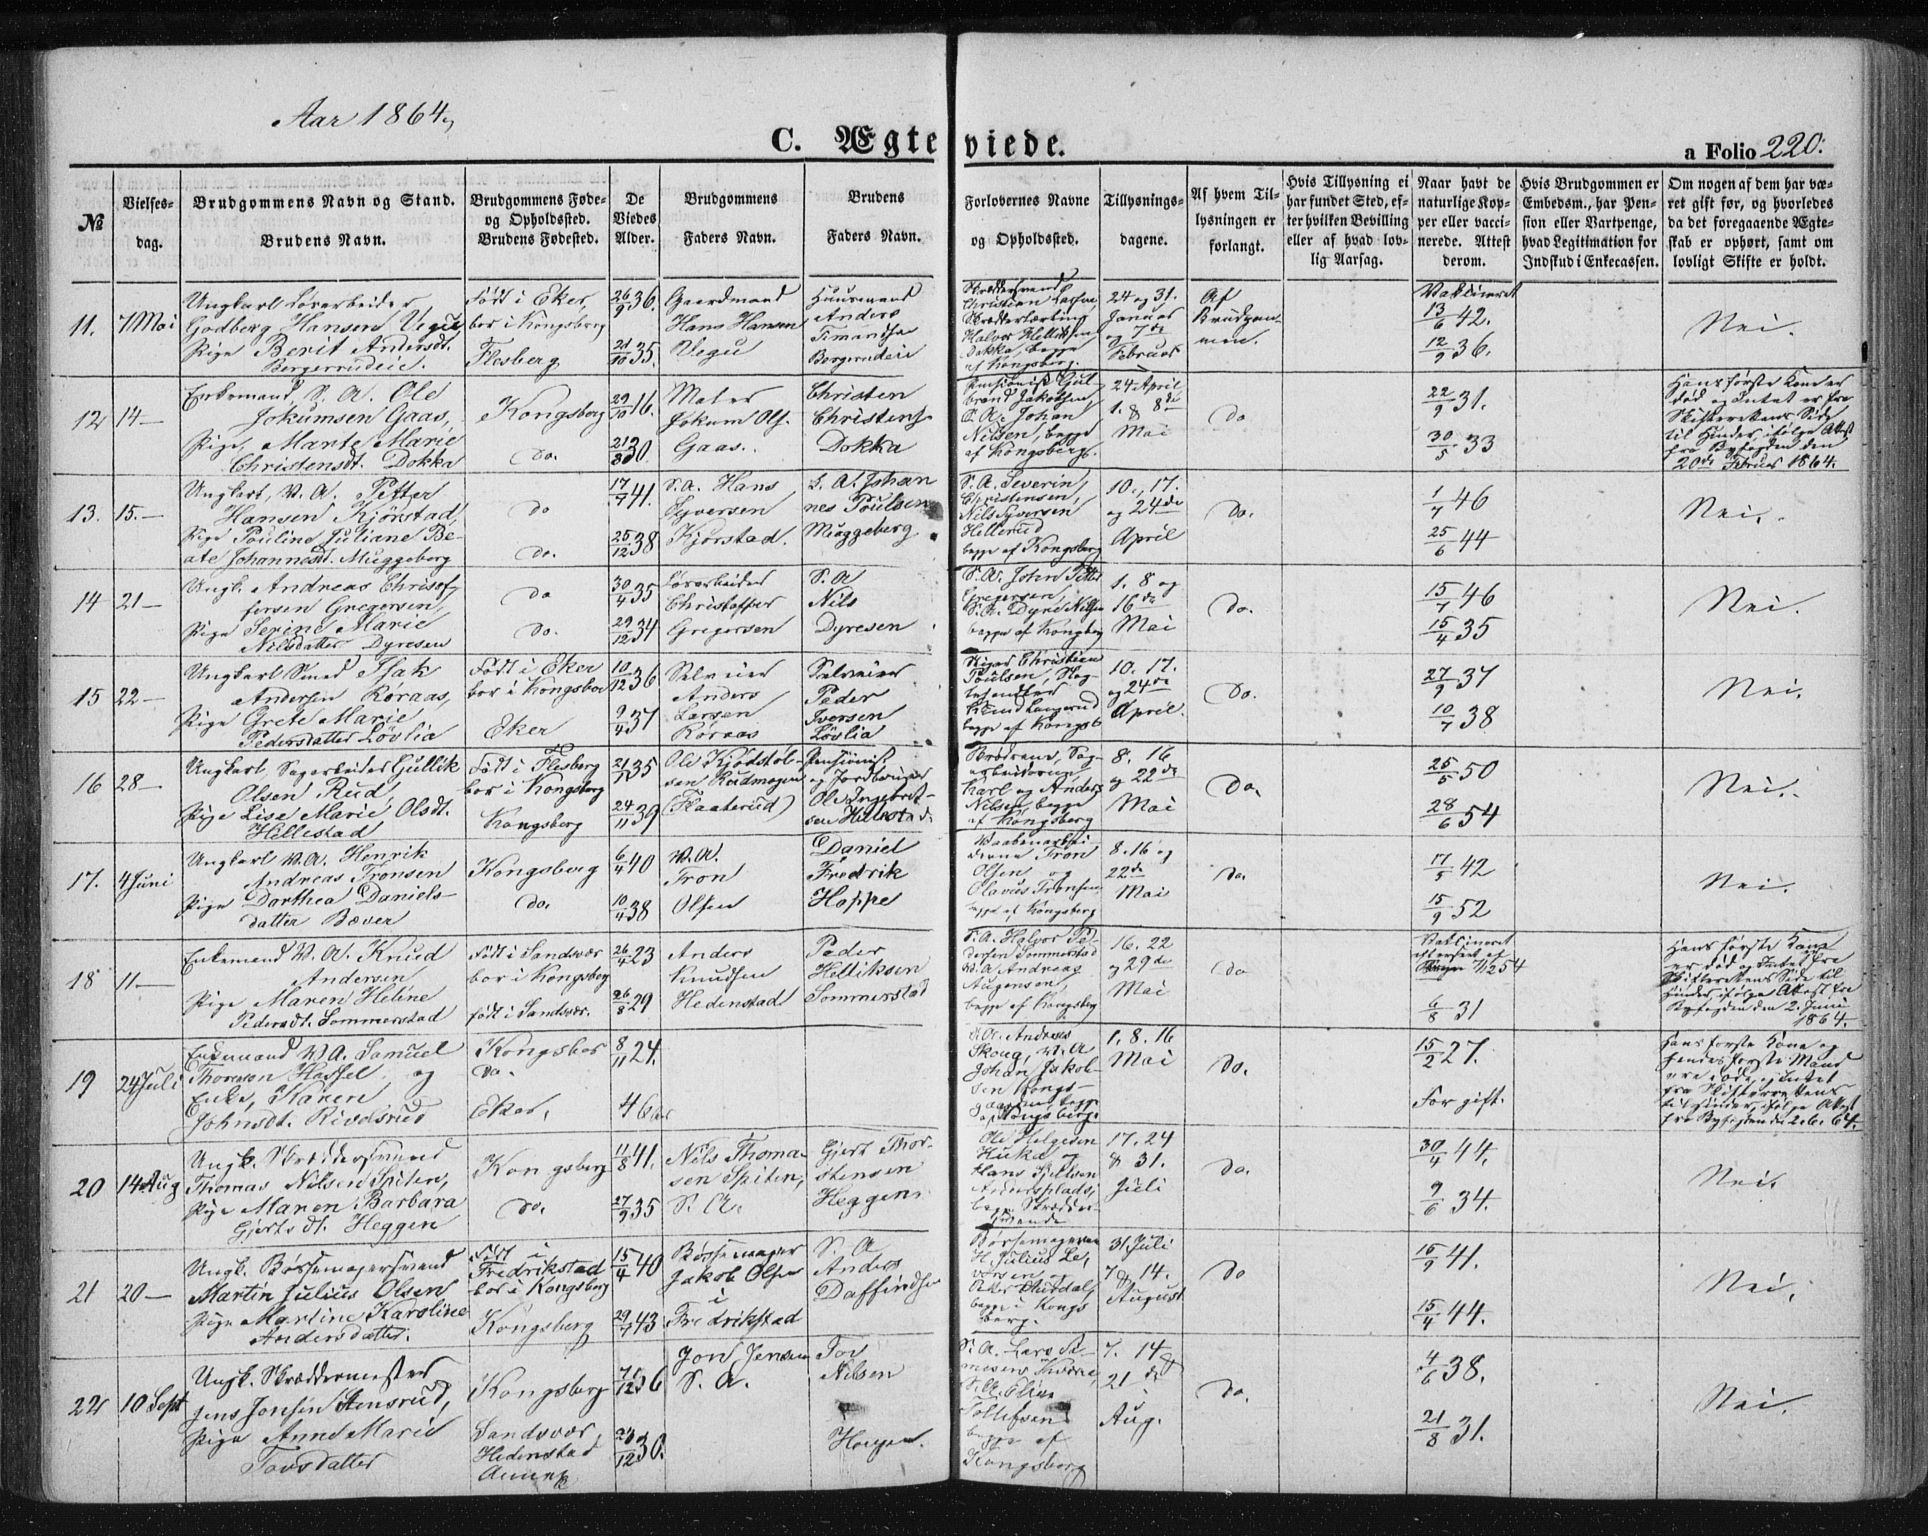 Aar 1864,
C. Ægteviede.
a Folio 220:
№
Vielses-
dag.
Brudgommens Navn og Stand.
Brudens Navn.
Brudgommens Føde-
og Opholdssted.
Brudens Fødested.
De
Viedes
Alder.
Brudgommens
Faders Navn.
Brudens
Faders Navn.
Forlovernes Navne
og Opholdssted.
Tillysnings-
dagene.
Af hvem Til-
lysningen er
forlangt.
Hvis Tillysning ei
har fundet Sted, ef-
ter hvilken Bevilling
eller af hvad lov-
lig Aarsag.
Naar havt de
naturlige Kop-
per eller vacci-
nerede. Attest
derom.
Hvis Brudgommen er
Embedsm., har Pen-
sion eller Vartpenge,
hvad Legitimation for
Indskud i Enkecassen.
Om nogen af dem har væ-
ret gift før, og hvorledes
da det foregaaende Ægte-
skab er ophørt, samt om
lovligt Skifte er holdt.
11. 7 Mai
Ungkarl Lørarbeider
Godberg Hansen Vegu
Pige Berit Andersdt.
Bergerrudeie.
Født i Eker,
bor i Kongsberg
Flesberg
26/9 36.
21/10 35.
Gaardmand
Hans Hansen
Vegu
Huusmand
Anders
Bergerudeie
Christian Larsen
Halvor Helliksen
Dokka, begge
af Kongsberg.
24 og 31.
Januar
og 7de
Februar
Af
Brudgom-
men.
Vakcineret
13/6 42.
12/9 36.
Nei.
12 14 —
Enkemand, S. A. Ole
Jokumsen Gaas,
Pige, Marte Marie
Christensdt. Dokka
Kongsberg
Do.
29/10 16.
21/8 30.
Maler
Jokum Ols.
Gaas.
Christen
Christens
Dokka
Pensionist Gul-
brand Jakobsen,
S. A. Johan
Nilsen, begge
af Kongsberg.
24 April
1. & 8de
Mai
Do
22/9 31.
30/5 33
Hans første Kone er
død og Intet er fra
Skifterettens Side
til Hinder, ifølge Attest
fra Byfogden den
20de Februar 1864.
13. 15. —
Ungkarl, V. A. Petter
Hansen Kjørstad,
Pige Pouline Juliane Be-
ate Johannesdt. Muggeberg
Do
Do.
17/7 41.
25/12 38
S. A. Hans
Syversen
Kjørstad.
S. A. Johan
nes Poulsen
Muggeberg
S. A. Severin
Christensen,
Nils Syversen
Hellerud
begge af Kongsberg
10., 17.
og 24de
April
Do.
1/7 46
25/6 44
Nei.
14 21 —
Ungk. Andreas Christof-
fersen Gregersen,
Pige Serine Marie
Nilsdatter Dyresen
Do
Do.
30/4 35
29/12 34
Lørarbeider
Christoffer
Gregersen
S. A
Nils
Dyresen
S. A. John Petter
Gregersen,
S. A. Dyre Nilsen
begge af Kongsberg
1. 8 og
16de
Mai
Do.
15/7 46
15/4 35
Nei.
15 22 —
Ungkarl Smed Isak
Andersen Roraas,
Pige Grete Marie
Pedersdatter Løvlia
Født i Eker
bor i Kongsber
Eker
10/12 36
9/4 37
Anders
Larsen
Roraas
Peder
Iversen
Løvlia
Christian
Poulsen,
begge af Kongsb
10. 17.
og 24de
April.
Do.
27/9 37
10/7 38
Nei.
16 28 —
Ungkarl, Sagarbeider Gullik
Olsen Rud
Pige Lise Marie Olsdt.
Hellestad
Født i Flesberg
bor i Kongsberg
Kongsberg
21/7 35
24/11 39
Ole Kjødstol-
sen Rudmogen
(Flaaterud)
Pensionist
og Jordbruger
Ole Ingebret-
sen Hellestad.
Brødrene, Sag-
arbeiderne
Karl og Anders
Nilsen, begge
af Kongsberg
8. 16
og 22de
Mai
Do.
25/5 50
28/6 54
Nei.
17. 4 Juni
Ungkarl V. A. Henrik
Andreas Tronsen
Pige Dorthea Daniels-
datter Bæver
Kongsberg
Do.
6/4 40
10/4 38
V. A.
Tron
Olsen
Daniel
Fredrik
Hoppe
Vaabenarbei-
derne Tron
Olsen og
Olavus Tronsen
begge af Kongsberg
8. 16 og
22de
Mai
Do.
17/5 42
15/9 52
Nei.
18 11 —
Enkemand V. A. Knud
Andersen
Pige Maren Heline
Pedersdt. Sommerstad
Født i Sandsvær
bor i Kongsberg
født i Sandsvær.
26/4 23
26/8 29
Anders
Knudsen
Hedenstad
Peder
Helliksen
Sommerstad
S. A. Halvor Pe-
dersen Sommerstad
V. A Andreas
Augensen,
begge af Kongsberg
16. 22
og 29de
Mai
Do
Vakcineret
6/8 31
Hans første Kone
er død og Intet fra
Skifterettens Side til
Hinder, ifølge Attest fra
Byfogden den 2. Juni
1864.
19 24 Juli
Enkemand V. A. Samuel
Thoreson Hassel og
Enke, Karen
Johnsdt. Rivelsrud
Kongsber
Do.
Eker,
8/11 24.
46
Andreas
Skoug, V. A
Johan Jakob-
sen Kongs-
gaarden, begge
af Kongsberg.
1. 8. 16
Mai
Do.
15/2 27.
Før gift.
Hans første Kone og
hendes første Mand
ere døde, og Intet
fra Skifterettens
til Hinder, ifølge Attest
fra Byfogden de 2. 6. 64.
20 14 Aug
Ungk. Skræddersvend
Thomas Nilsen Spiten,
Pige Maren Barbara
Gjertsdt. Heggen
Kongsberg
Do.
11/8 41.
27/9 35
Nils Thoma-
sen Spiten,
S. A.
Gjert Thor-
stensen
Heggen.
Ole Helgesen
Huka og
Hans Kjelsen
Anders plads,
begge Skrædder-
svende
17. 24
& 31.
Juli
Do.
30/4 44.
9/6 34.
Nei.
21 20 —
Ungk. Børsemagersvend
Martin Julius Olsen
Pige Martine Karoline
Andersdatter.
Født i
Fredrikstad
bor i Kongsberg
Kongsberg
15/4 40
29/7 43
Børsemager
Jakob Olsen
i
Fredrikstad
S. A
Anders
Daffindsen
Børsemagerne
H. Julius Le-
begge i Kongs
berg.
31 Juli
7 & 14.
August
Do
16/9 41.
15/4 44.
Nei.
22 10 Sept
Ungk. Skræddermester
Jens Jonsen Stensrud,
Pige Anne Marie
Torsdatter
Kongsberg
Sandsvær,
Hedenstad
Annex
7/12 36
20/12 30.
Jon Jensen
S. A.
Tor
Nilsen
Haugen.
S. A. Lars
Tollefsen
begge af
Kongsberg
7. 14
21de
Aug.
Do.
4/6 38.
21/8 31.
Nei.